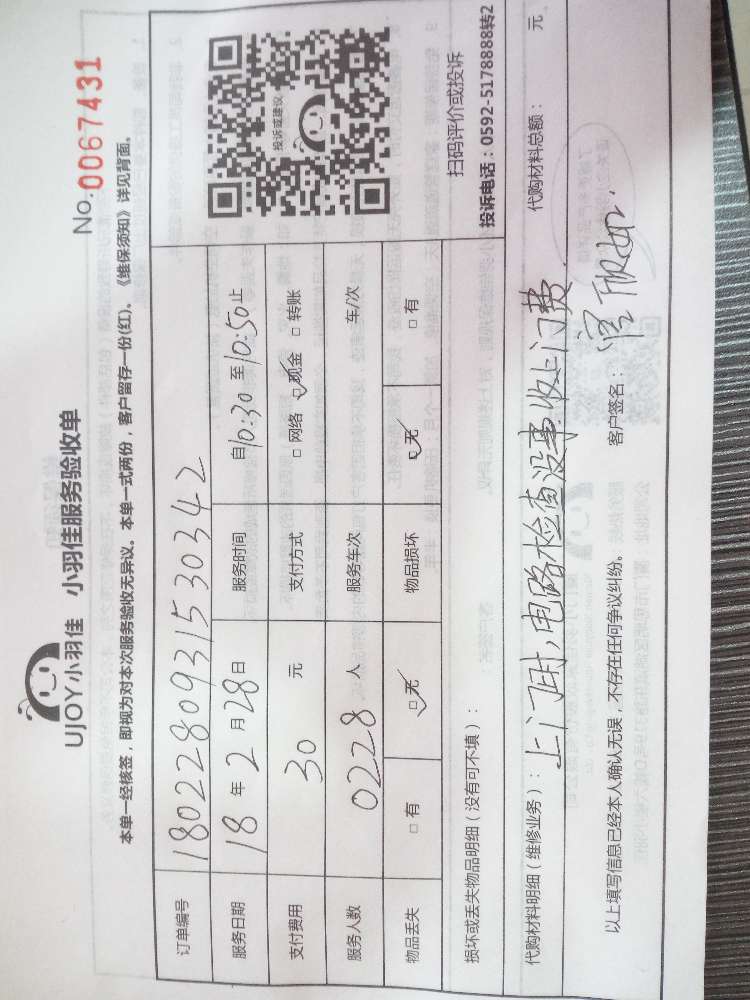 UJOY小羽佳 小羽佳服务验收单
No. 0067431
本单一经核签，即视为对本次服务验收无异议。本单一式两份，客户留存一份(红)。《维保须知》详见背面。
订单编号 1802280931530342
服务日期 18 年 2 月 28 日 服务时间 自10:30 至10:50止
支付费用 30 元 支付方式 □ 网络 □ 现金 □ 转账
服务人数 0228 人 服务车次 车/次
物品丢失 □ 有 □ 无 物品损坏 □ 无 □ 有
投诉或建议
扫码评价或投诉
投诉电话：0592-5178888转2
损坏或丢失物品明细（没有可不填）：
代购材料明细（维修业务）：上门时，电路检查没事.收上门费.
代购材料总额： 元
以上填写信息已经本人确认无误，不存在任何争议纠纷。
客户签名：